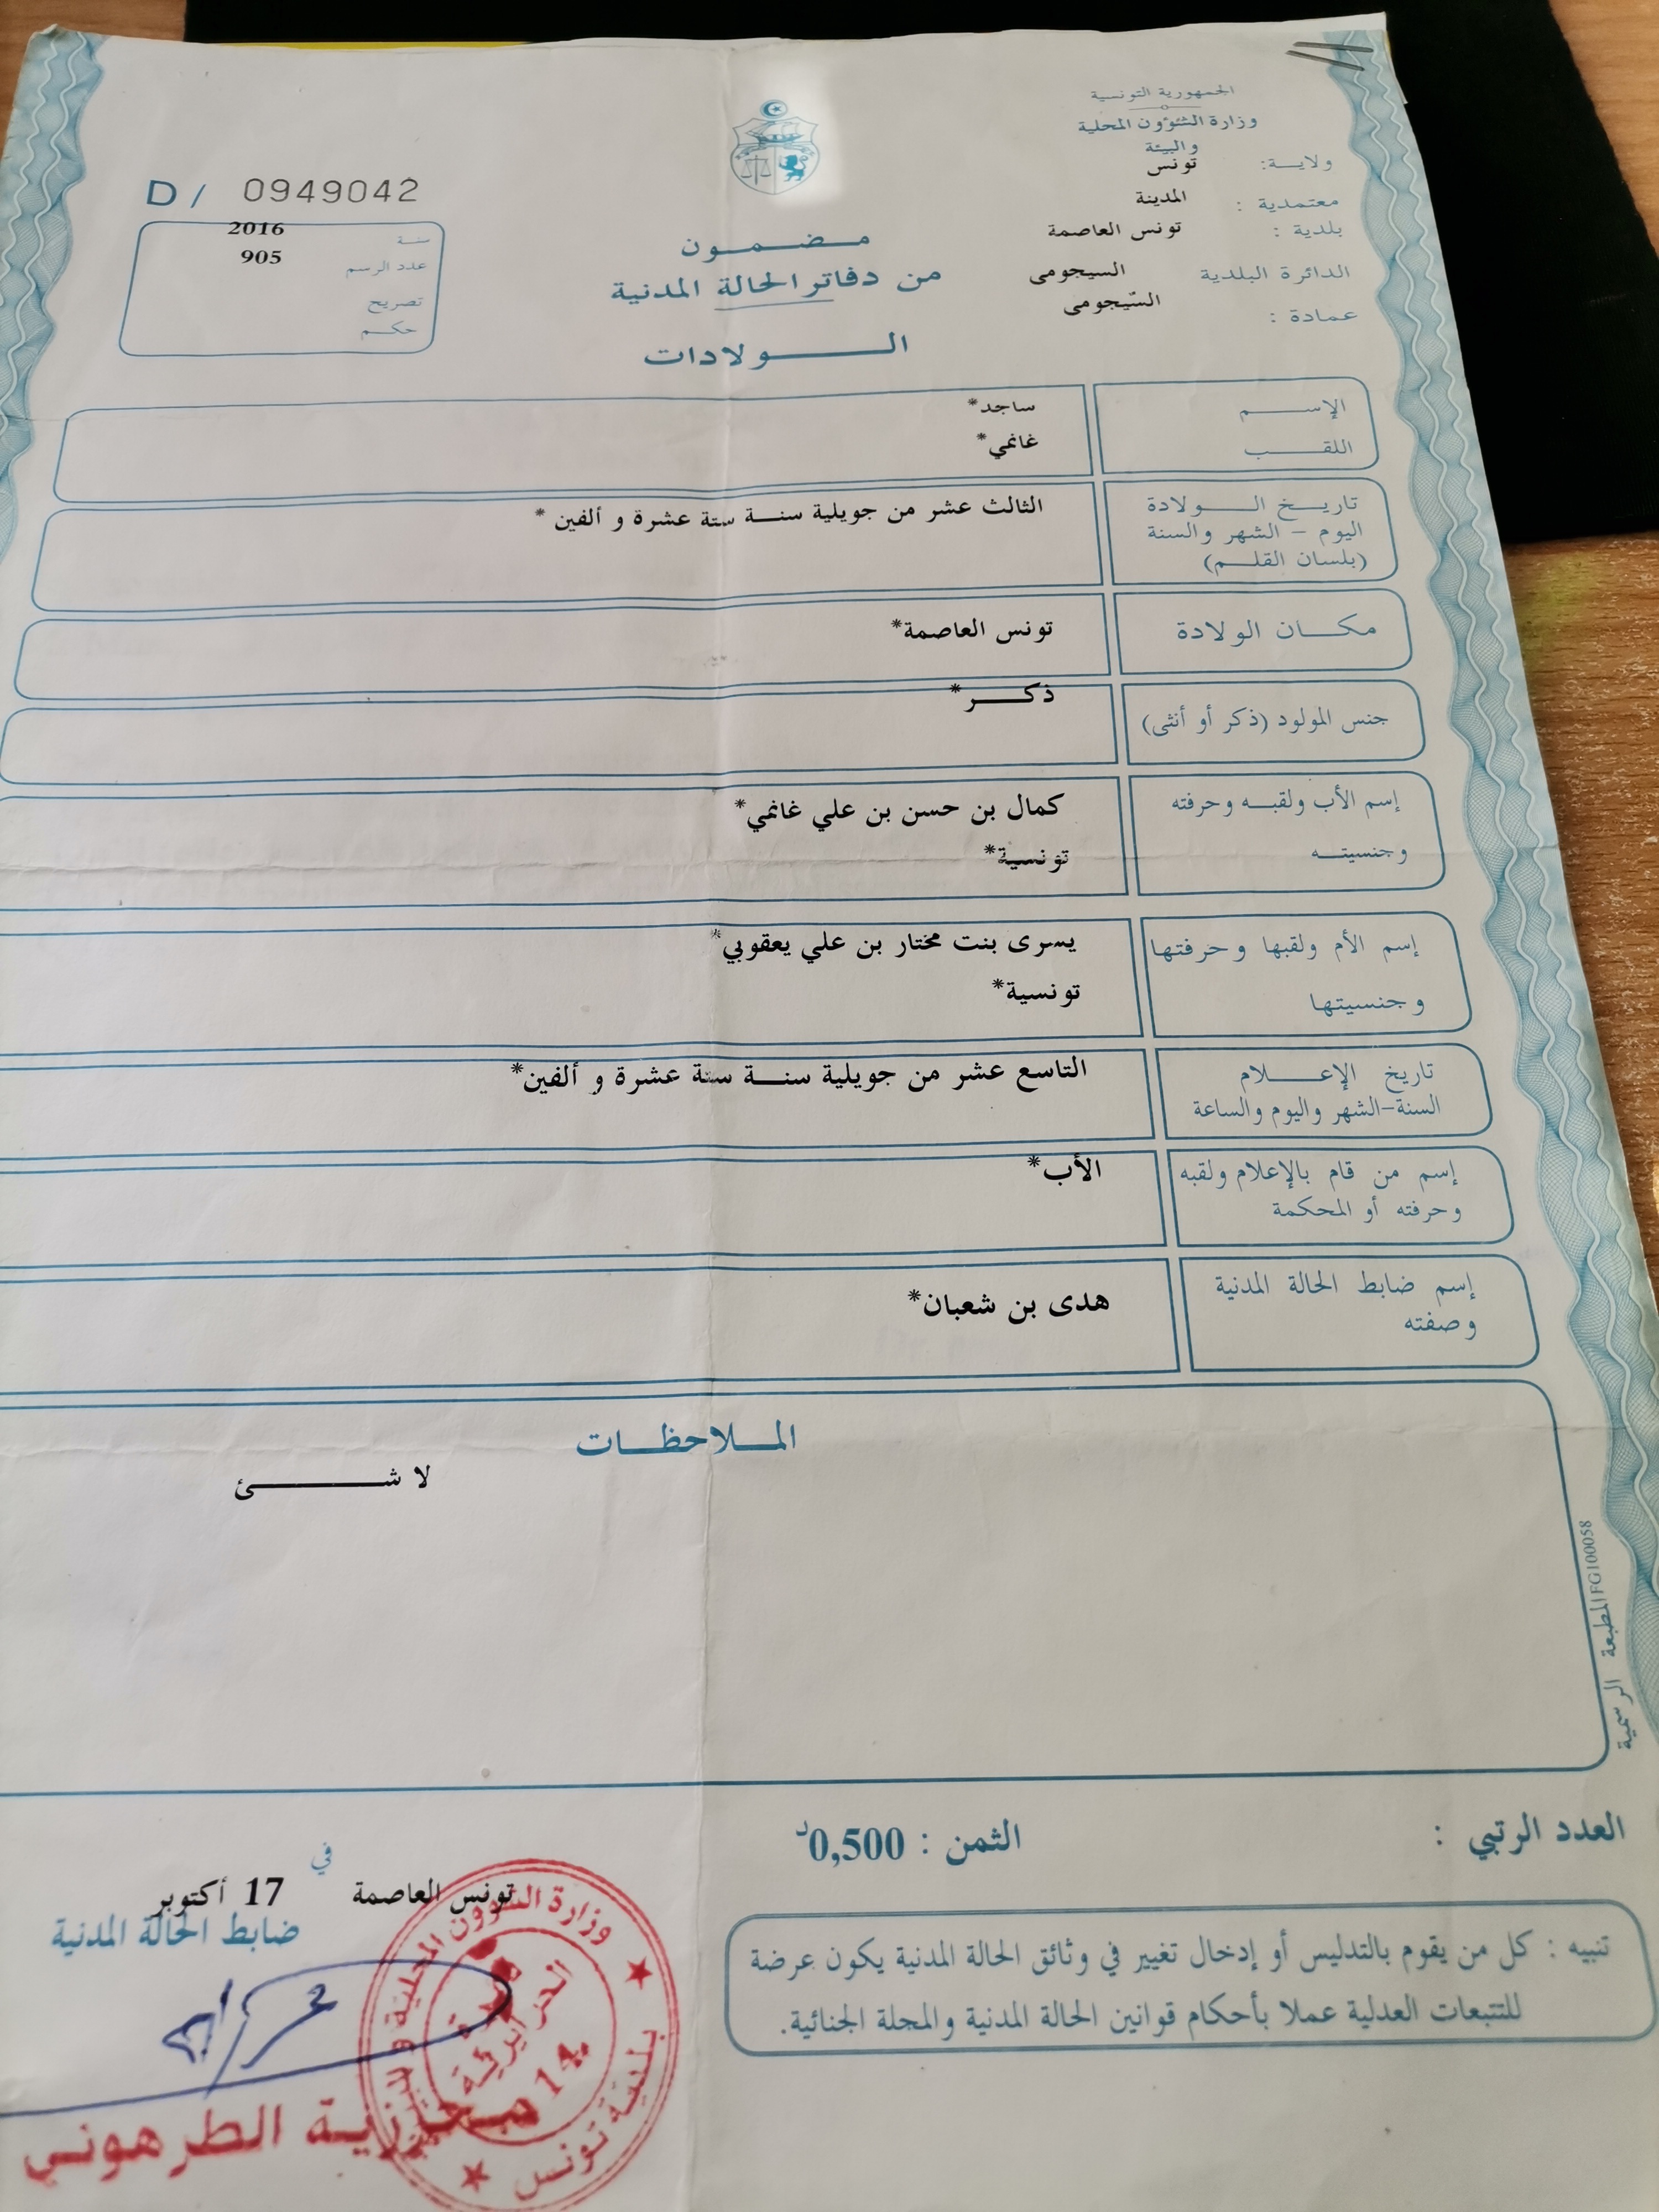 الجمهورية التونسية
وزارة الشؤون المحلية
والبيئة
ولايــة: تونس
معتمدية : المدينة
بلدية : تونس العاصمة
الدائرة البلدية السيجومى
عمادة : السّيجومى
D / 0949042
سنـة 2016
عدد الرسم 905
تصريح
حكــم
مـضـمـون
من دفاتر الحالة المدنية
الـــولادات
الإســـم ساجد*
اللقــب غانمي*
تاريــخ الـــولادة الثالث عشر من جويلية سنــة ستة عشرة و ألفين *
اليوم – الشهر والسنة
(بلسان القلــم)
مكــان الولادة تونس العاصمة*
جنس المولود (ذكر أو أنثى) ذكـــر*
إسم الأب ولقبــه وحرفته كمال بن حسن بن علي غانمي*
وجنسيتــه تونسية*
إسم الأم ولقبها وحرفتـها يسرى بنت مختار بن علي يعقوبي*
وجنسيتها تونسية*
تاريخ الإعـــلام التاسع عشر من جويلية سنــة ستة عشرة و ألفين*
السنة-الشهر واليوم والساعة
إسم من قام بالإعلام ولقبه الأب*
وحرفته أو المحكمة
إسم ضابط الحالة المدنية هدى بن شعبان*
وصفته
المــلاحظــات
لا شـــئ
المطبعة الرسمية FG100058
العدد الرتبي :
الثمن : 0,500د
في
تونس العاصمة 17 أكتوبر
ضابط الحالة المدنية
تنبيه : كل من يقوم بالتدليس أو إدخال تغيير في وثائق الحالة المدنية يكون عرضة
للتتبعات العدلية عملا بأحكام قوانين الحالة المدنية والمجلة الجنائية.
وزارة الشؤون المحلية والبيئة
بلدية تونس
14
محرزية الطرهوني